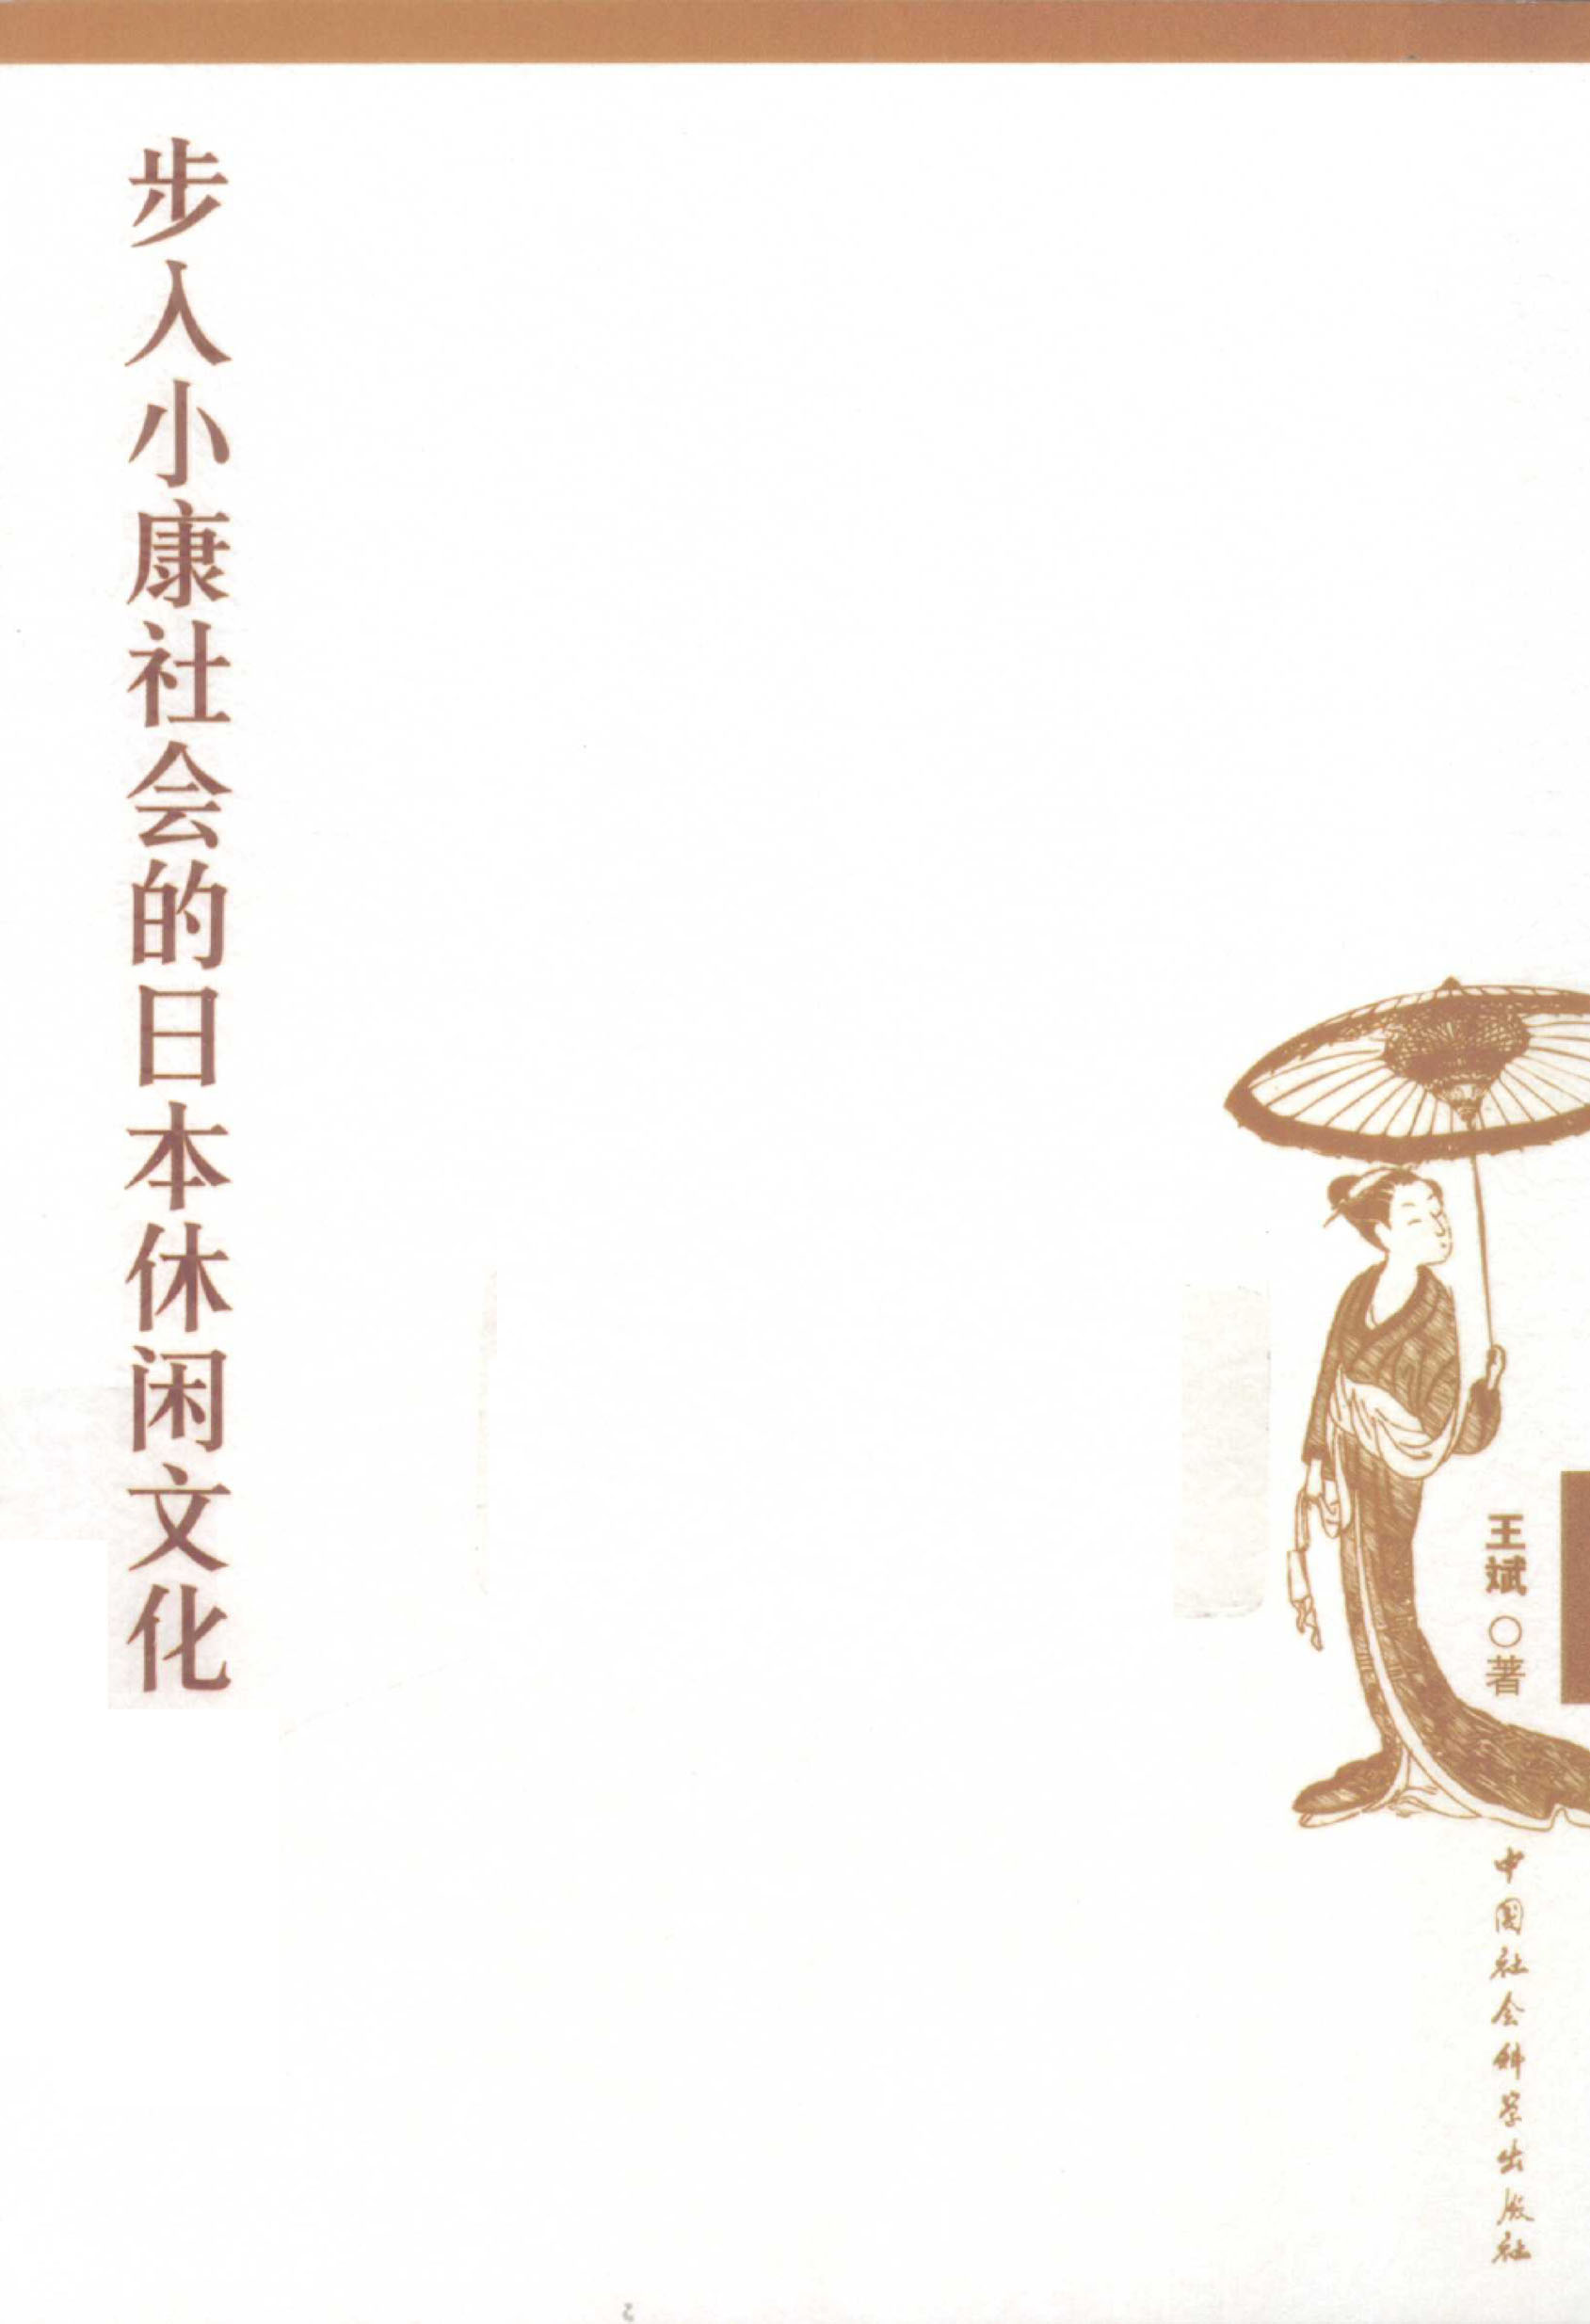 步入小康社会的日本休闲文化
王斌○著
中国社会科学出版社